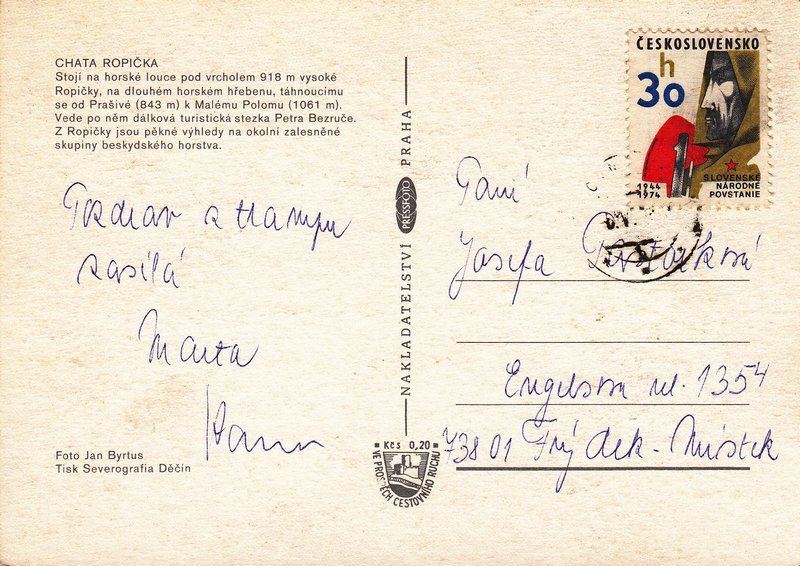 CHATA ROPIČKA
Stojí na horské louce pod vrcholem 918 m vysoké
Ropičky, na dlouhém horském hřebenu, táhnoucímu
se od Prašivé (843 m) k Malému Polomu (1061 m).
Vede po něm dálková turistická stezka Petra Bezruče.
Z Ropičky jsou pěkné výhledy na okolní zalesněné
skupiny beskydského horstva.
Pozdrav z trampu
zasílá
Marta
Foto Jan Byrtus
Tisk Severografia Děčín
NAKLADATELSTVÍ PRESSFOTO PRAHA
Kčs 0,20
VE PROSPĚCH CESTOVNÍHO RUCHU
ČESKOSLOVENSKO
h
30
1944
1974
SLOVENSKÉ
NÁRODNÉ
POVSTANIE
Paní
Josefa
Engelsova ul. 1354
73801 Frýdek-Místek